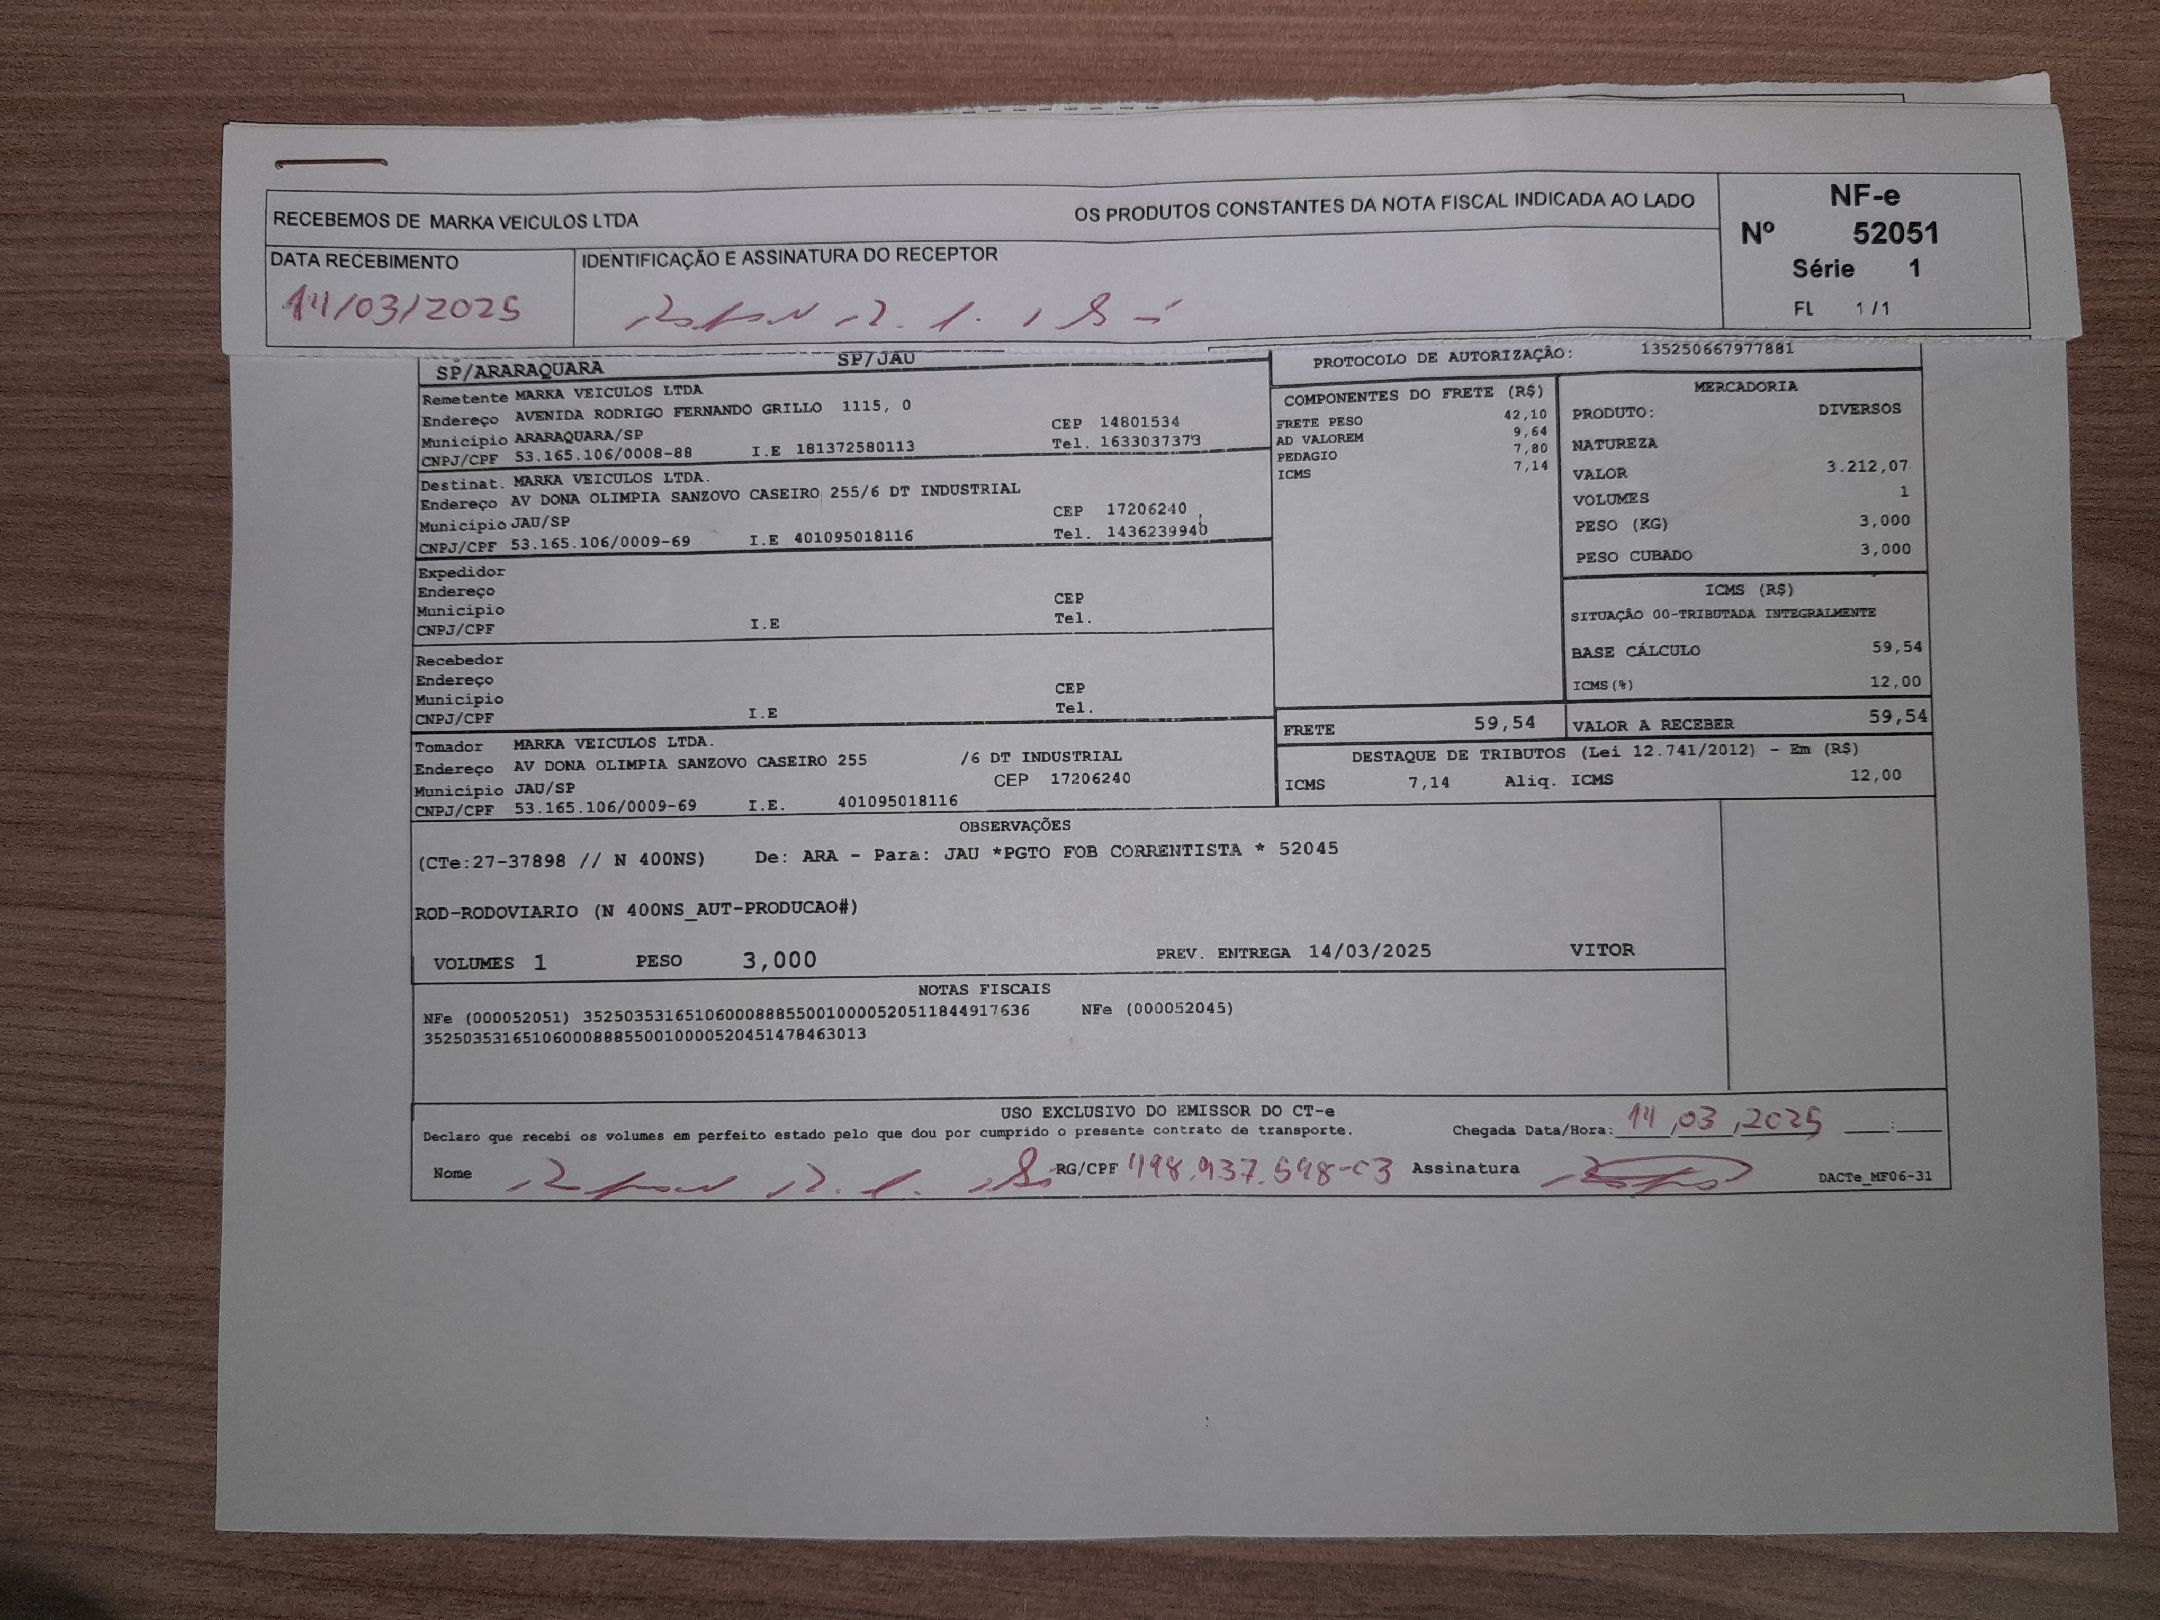 RECEBEMOS DE MARKA VEICULOS LTDA OS PRODUTOS CONSTANTES DA NOTA FISCAL INDICADA AO LADO
NF-e
Nº 52051
Série 1
FL 1/1
DATA RECEBIMENTO
14/03/2025
IDENTIFICAÇÃO E ASSINATURA DO RECEPTOR
SP/ARARAQUARA SP/JAU
Remetente MARKA VEICULOS LTDA
Endereço AVENIDA RODRIGO FERNANDO GRILLO 1115, 0
CEP 14801534
Município ARARAQUARA/SP
Tel. 1633037373
CNPJ/CPF 53.165.106/0008-88 I.E 181372580113
Destinat. MARKA VEICULOS LTDA.
Endereço AV DONA OLIMPIA SANZOVO CASEIRO 255/6 DT INDUSTRIAL
Município JAU/SP CEP 17206240
CNPJ/CPF 53.165.106/0009-69 I.E 401095018116 Tel. 1436239940
Expedidor
Endereço
Município CEP
CNPJ/CPF I.E Tel.
Recebedor
Endereço
Município CEP
CNPJ/CPF I.E Tel.
Tomador MARKA VEICULOS LTDA.
Endereço AV DONA OLIMPIA SANZOVO CASEIRO 255 /6 DT INDUSTRIAL
Município JAU/SP CEP 17206240
CNPJ/CPF 53.165.106/0009-69 I.E. 401095018116
PROTOCOLO DE AUTORIZAÇÃO: 135250667977881
COMPONENTES DO FRETE (R$)
FRETE PESO 42,10
AD VALOREM 9,64
PEDAGIO 7,80
ICMS 7,14
MERCADORIA
PRODUTO: DIVERSOS
NATUREZA
VALOR 3.212,07
VOLUMES 1
PESO (KG) 3,000
PESO CUBADO 3,000
ICMS (R$)
SITUAÇÃO 00-TRIBUTADA INTEGRALMENTE
BASE CÁLCULO 59,54
ICMS(%) 12,00
FRETE 59,54 VALOR A RECEBER 59,54
DESTAQUE DE TRIBUTOS (Lei 12.741/2012) - Em (R$)
ICMS 7,14 Aliq. ICMS 12,00
OBSERVAÇÕES
(CTe:27-37898 // N 400NS) De: ARA - Para: JAU *PGTO FOB CORRENTISTA * 52045
ROD-RODOVIARIO (N 400NS_AUT-PRODUCAO#)
VOLUMES 1 PESO 3,000 PREV. ENTREGA 14/03/2025 VITOR
NOTAS FISCAIS
NFe (000052051) 35250353165106000888550010000520511844917636 NFe (000052045)
35250353165106000888550010000520451478463013
USO EXCLUSIVO DO EMISSOR DO CT-e
Declaro que recebi os volumes em perfeito estado pelo que dou por cumprido o presente contrato de transporte. Chegada Data/Hora: 14,03,2025 :
Nome RG/CPF Assinatura DACTe_MF06-31